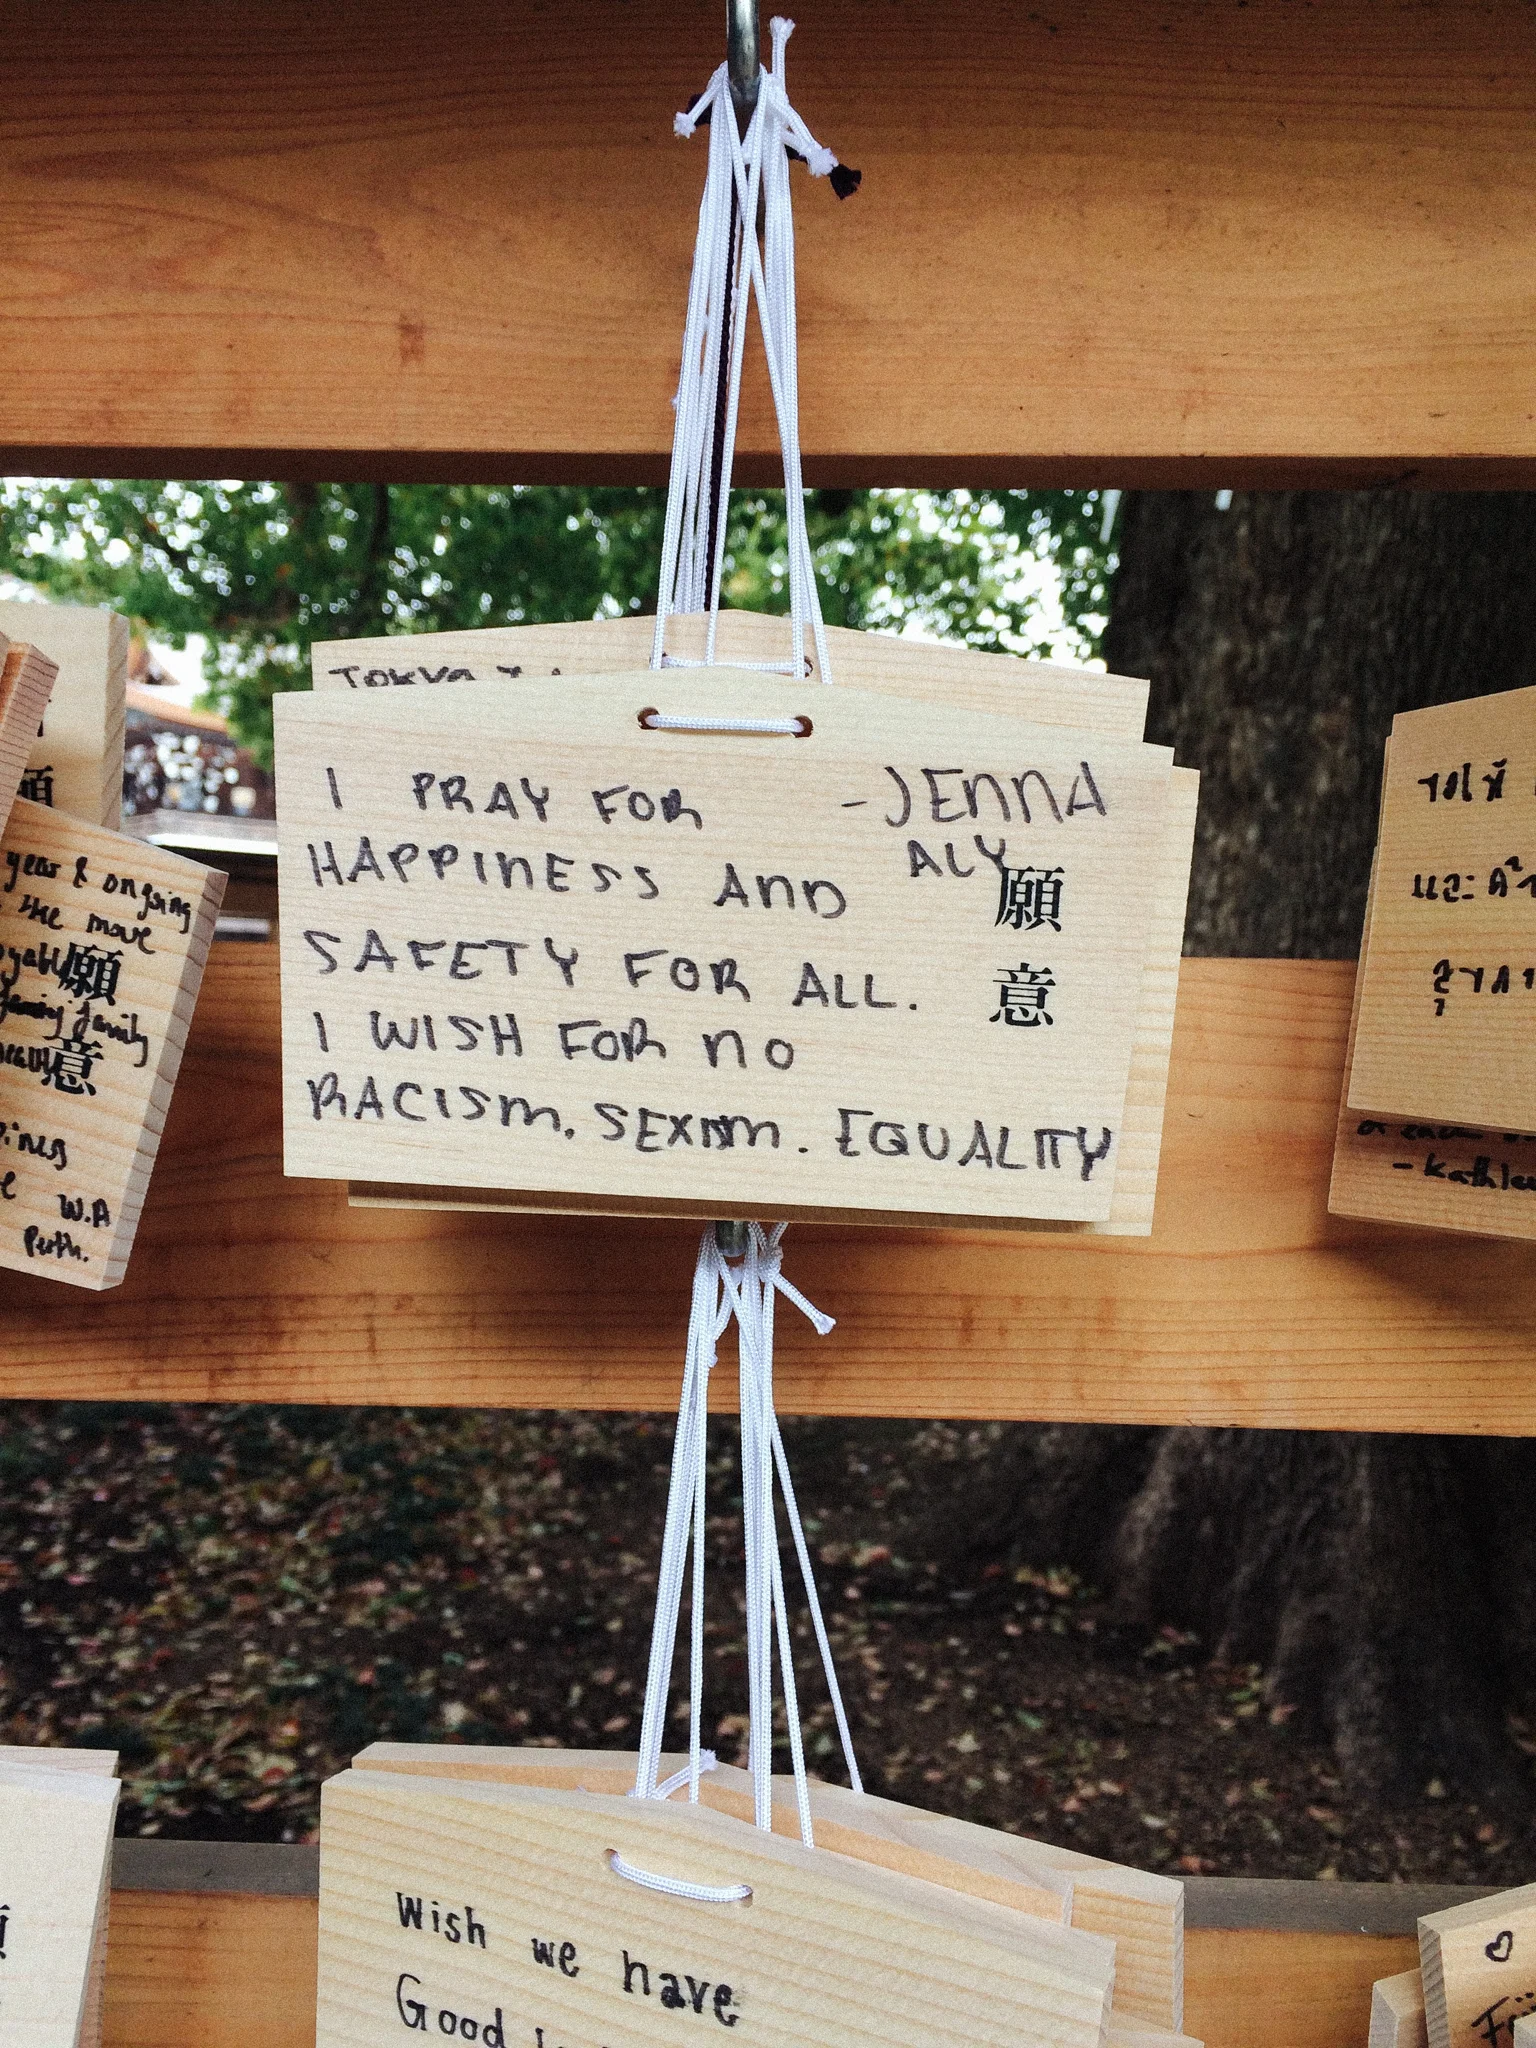 TOKYO
I PRAY FOR
HAPPINESS AND
SAFETY FOR ALL.
I WISH FOR NO
RACISM. SEXISM. EQUALITY
-JENNA
ALY
願
意
願
year & ongoing
the move
願
family
意
W.A
Perth.
- Kathlee
Wish we have
Good